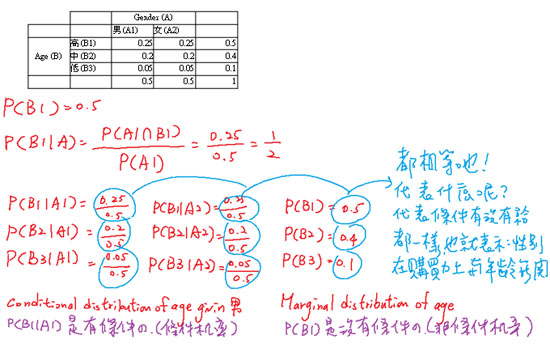 Gender (A)
男(A1) 女(A2)
高(B1) 0.25 0.25 0.5
Age (B) 中(B2) 0.2 0.2 0.4
低(B3) 0.05 0.05 0.1
0.5 0.5 1
P(B1)=0.5
P(B1|A)= P(A1∩B1)/P(A1) = 0.25/0.5 = 1/2
都相等也!
代表什底呢?
代表條件有沒有給
都一樣,也就表示性別
在購買力上與年齡無関
P(B1|A1) 0.25/0.5 P(B1|A2)= 0.25/0.5 P(B1)= 0.5
P(B2|A1)= 0.2/0.5 P(B2|A2)= 0.2/0.5 P(B2)= 0.4
P(B3|A1)= 0.05/0.5 P(B3|A2)= 0.05/0.5 P(B3)= 0.1
Conditional distribution of age given 男
Marginal distribution of age
P(B1|A1) 是有條件の.(條件机率)
P(B1) 是沒有條件の.(條件机率)